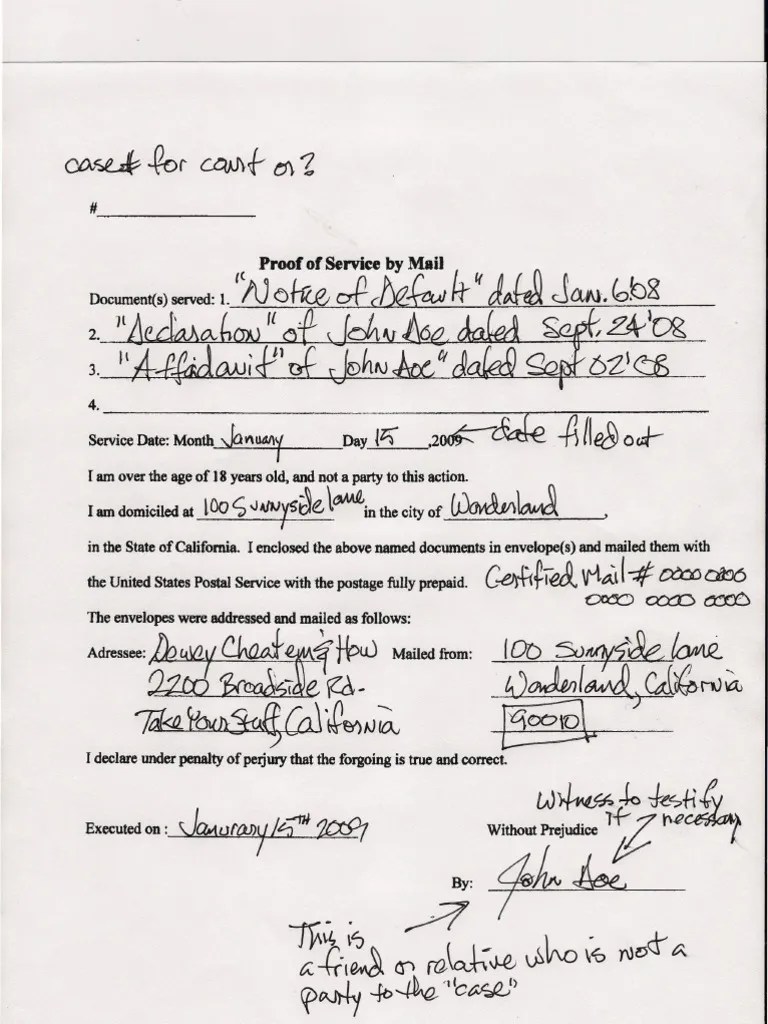 case# for court or?
#
Proof of Service by Mail
Document(s) served: 1. "Notice of Default" dated Jan. 6'08
2. "Declaration" of John Doe dated Sept. 24'08
3. "Affidavit" of John Doe" dated Sept 02'08
4.
Service Date: Month January Day 15 ,2009 ← date filled out
I am over the age of 18 years old, and not a party to this action.
I am domiciled at 100 Sunnyside lane in the city of Wonderland ,
in the State of California. I enclosed the above named documents in envelope(s) and mailed them with
the United States Postal Service with the postage fully prepaid. Certified Mail # 0000 0000
0000 0000 0000
The envelopes were addressed and mailed as follows:
Adressee: Dewey Cheatem & How Mailed from: 100 Sunnyside lane
2200 Broadside Rd. Wonderland, California
Take Your Stuff, California 90010
I declare under penalty of perjury that the forgoing is true and correct.
Witness to testify
if necessary
Executed on : Janurary 15TH 2009 Without Prejudice
By: John Doe
This is
a friend or relative who is not a
party to the "case"